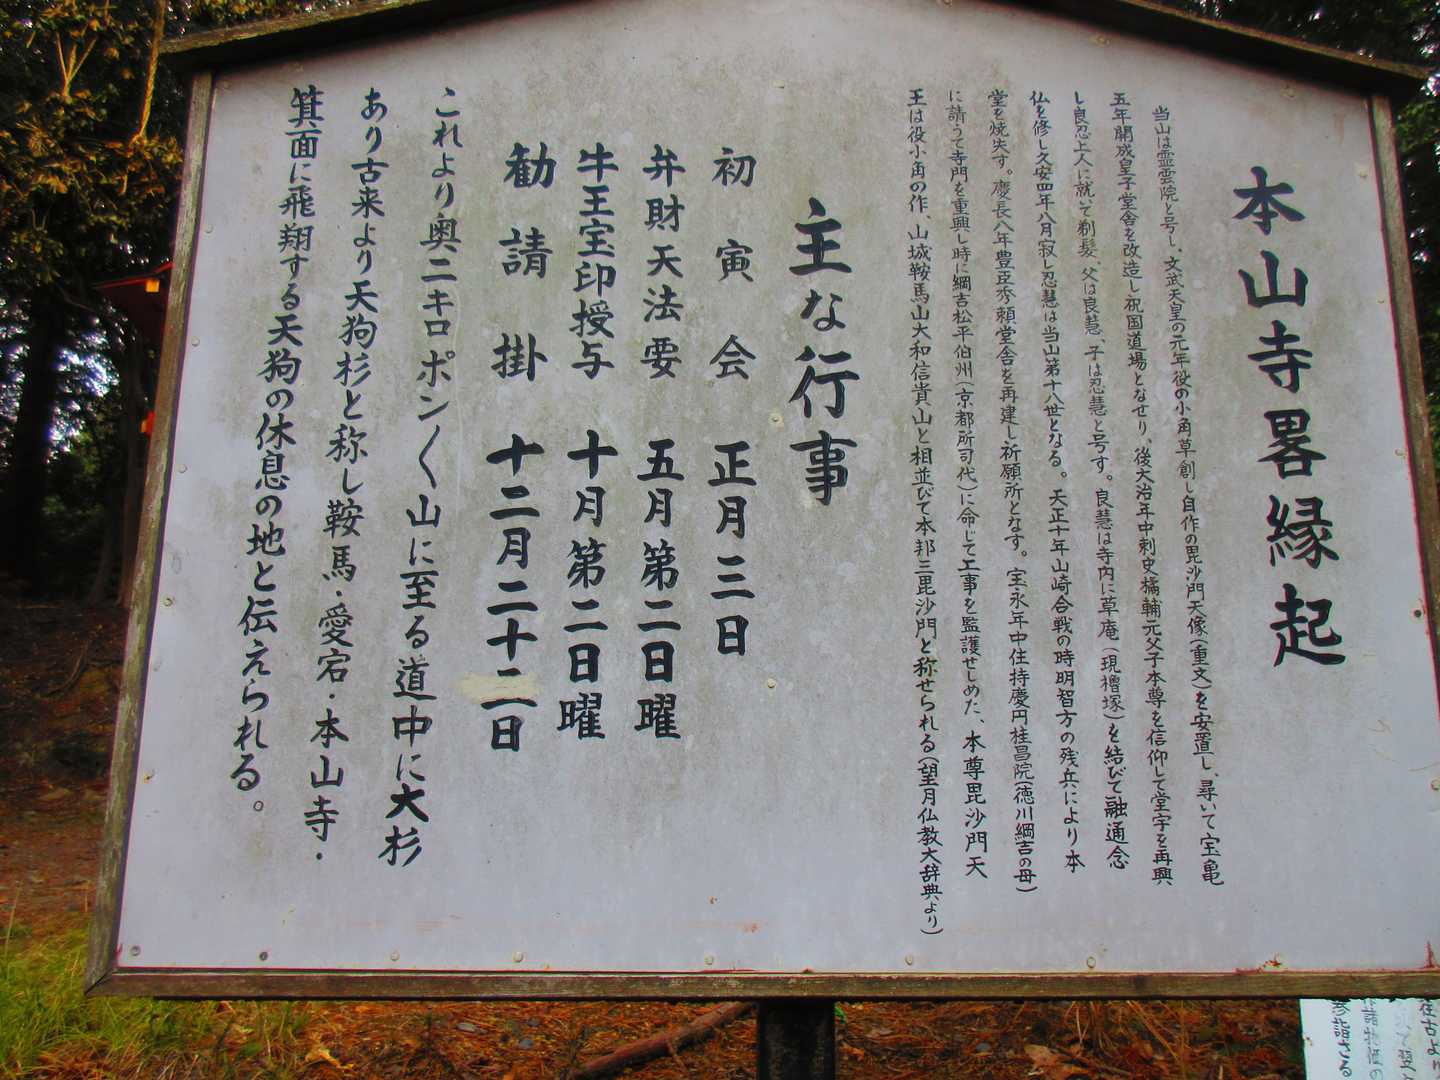 本山寺畧縁起
当山は霊雲院と号し、文武天皇の元年役の小角草創し自作の毘沙門天像（重文）を安置し、尋いて宝亀
五年開成皇子堂舎を改造し祝国道場となせり、後大治年中刺史橘輔元父子本尊を信仰して堂宇を再興
し良忍上人に就いて剃髪、父は良慧、子は忍慧と号す。良慧は寺内に草庵（現櫓塚）を結びて融通念
仏を修し久安四年八月寂し忍慧は当山第十八世となる。天正十年山崎合戦の時明智方の残兵により本
堂を焼失す。慶長八年豊臣秀頼堂舎を再建し祈願所となす。宝永年中住持慶円桂昌院（徳川綱吉の母）
に請うて寺門を重興し時に綱吉松平伯州（京都所司代）に命じて工事を監護せしめた、本尊毘沙門天
王は役小角の作、山城鞍馬山大和信貴山と相並びて本邦三毘沙門と称せられる（望月仏教大辞典より）
主な行事
初寅会 正月三日
弁財天法要 五月第二日曜
牛王宝印授与 十月第二日曜
勧請掛 十二月二十二日
これより奥二キロポン〱山に至る道中に大杉
あり古来より天狗杉と称し鞍馬・愛宕・本山寺・
箕面に飛翔する天狗の休息の地と伝えられる。